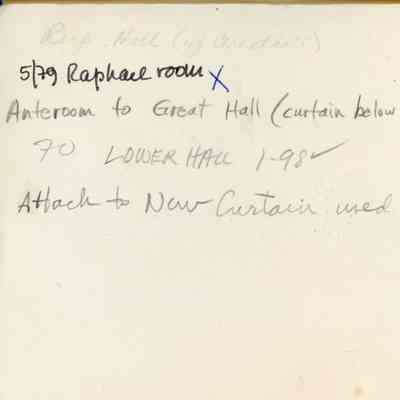 Hall
5/79 Raphael room X
Anteroom to Great Hall (curtain below
70 LOWER HALL 1-98 ✓
Attach to New Curtain used